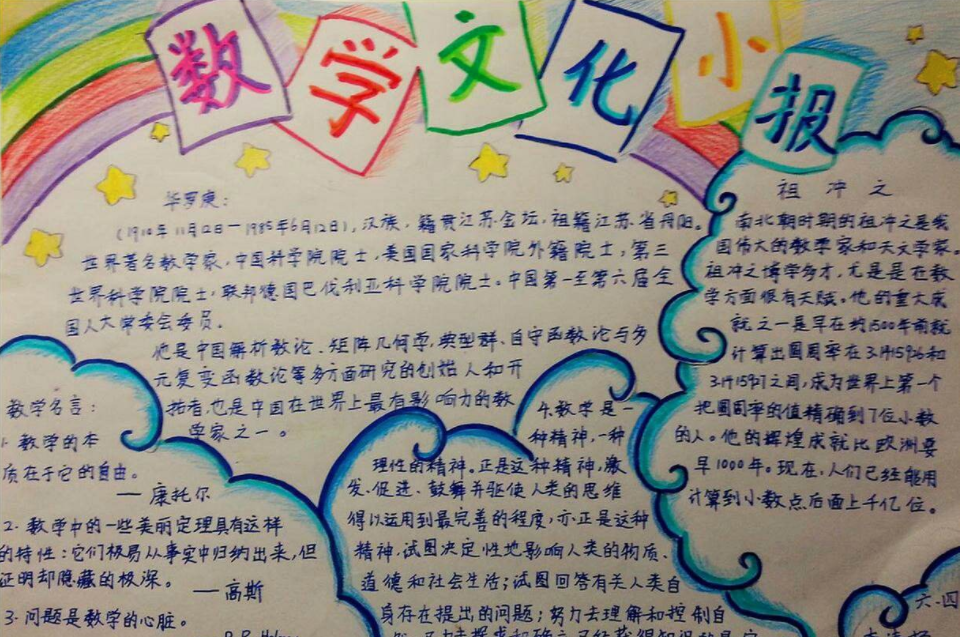 数学文化小报
华罗庚：
（1910年11月12日—1985年6月12日），汉族，籍贯江苏金坛，祖籍江苏省丹阳。
世界著名数学家，中国科学院院士，美国国家科学院外籍院士，第三
世界科学院院士，联邦德国巴伐利亚科学院院士。中国第一至第六届全
国人大常委会委员。
他是中国解析数论、矩阵几何学，典型群、自守函数论与多
元复变函数论等多方面研究的创始人和开
拓者，也是中国在世界上最有影响力的数
学家之一。
祖冲之
南北朝时期的祖冲之是我
国伟大的数学家和天文学家。
祖冲之博学多才，尤是是在数
学方面很有天赋。他的重大成
就之一是早在约1500年前就
计算出圆周率在3.1415926和
3.1415927之间，成为世界上第一个
把圆周率的值精确到7位小数
的人。他的辉煌成就比欧洲要
早1000年。现在，人们已经能用
计算到小数点后面上千亿位。
数学名言：
1.数学的本
质在于它的自由。
—康托尔
2.数学中的一些美丽定理具有这样
的特性：它们极易从事实中归纳出来，但
证明却隐藏的极深。
—高斯
3.问题是数学的心脏。
4.数学是一
种精神，一种
理性的精神。正是这种精神，激
发、促进、鼓舞并驱使人类的思维
得以运用到最完善的程度，亦正是这种
精神，试图决定性地影响人类的物质、
道德和社会生活；试图回答有关人类自
身存在提出的问题；努力去理解和控制自
六.四